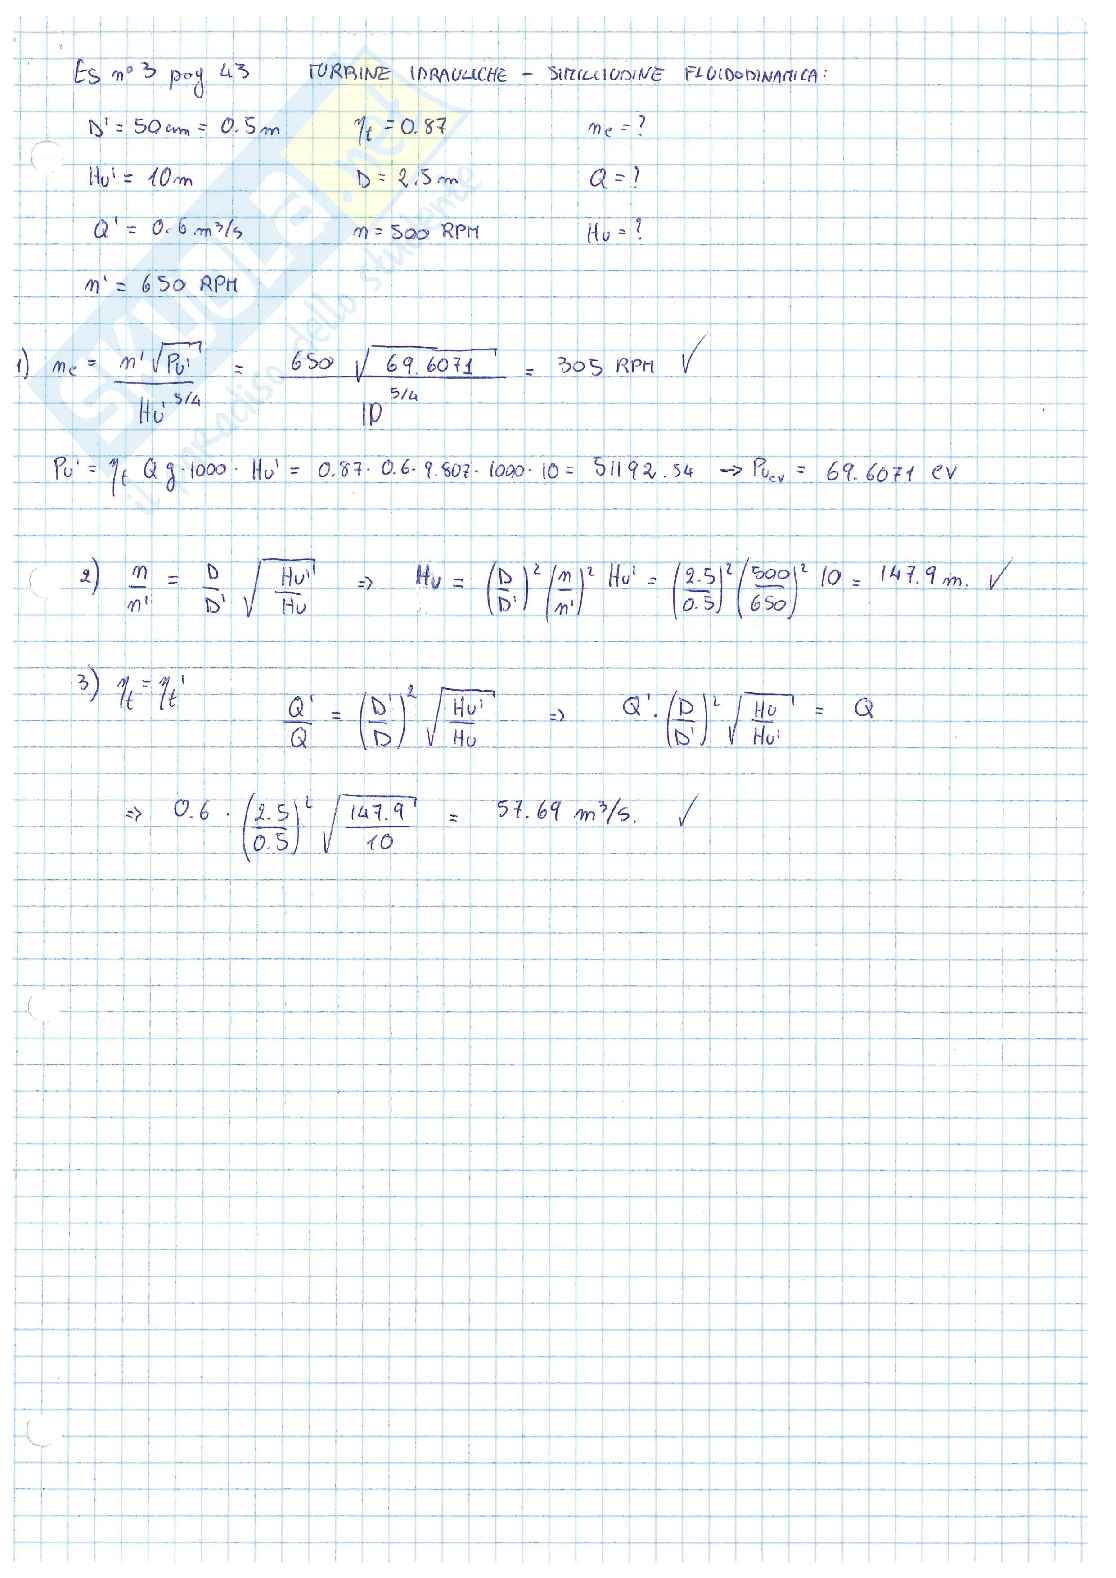 ES n° 3 pag 43 TURBINE IDRAULICHE - SIMILIUDINE FLUIDODINAMICA:
D' = 50 cm = 0.5 m ηt = 0.87 nc = ?
Hu' = 10 m D = 2.5 m Q = ?
Q' = 0.6 m³/s n = 500 RPM Hu = ?
n' = 650 RPM
1) nc = n' √Pu' / Hu'^5/4 = 650 √69.6071 / 10^5/4 = 305 RPM ✓
Pu' = ηt Q g · 1000 · Hu' = 0.87 · 0.6 · 9.807 · 1000 · 10 = 51192.54 → Pu cv = 69.6071 cv
2) n/n' = D/D' √(Hu'/Hu) ⇒ Hu = (D/D')² (n/n')² Hu' = (2.5/0.5)² (500/650)² 10 = 147.9 m. ✓
3) ηt = ηt'
Q'/Q = (D'/D)² √(Hu'/Hu) ⇒ Q' · (D/D')² √(Hu/Hu') = Q
⇒ 0.6 · (2.5/0.5)² √(147.9/10) = 57.69 m³/s. ✓
SKUOLA.net
il paradiso dello studente